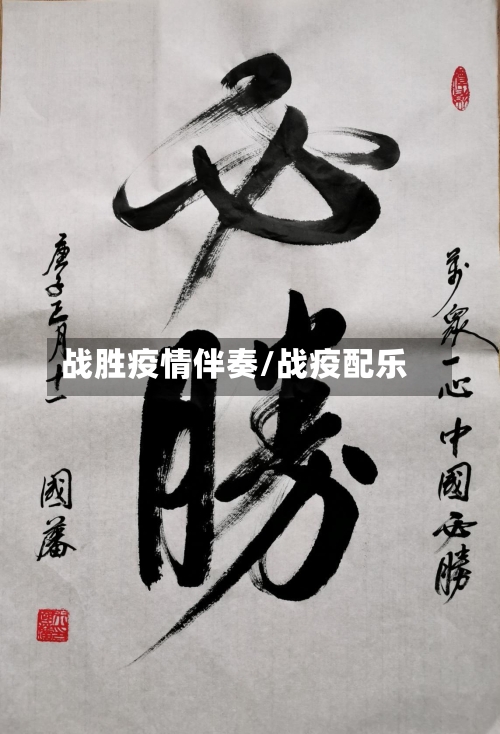 必勝
萬眾一心中國必勝
戰勝疫情伴奏/战疫配乐
庚子正月十一
國藩